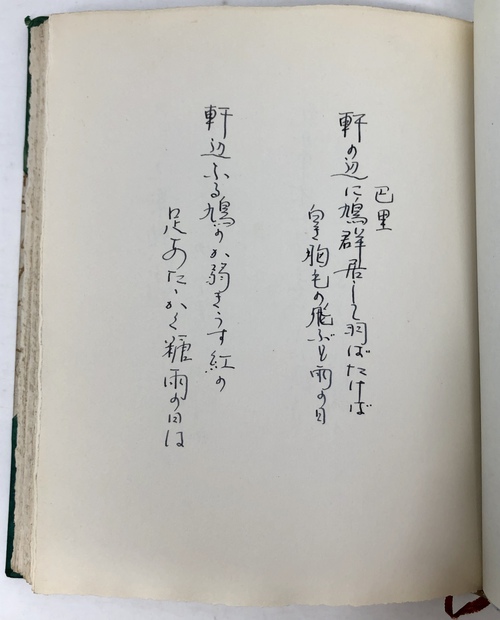 巴里
軒の辺に鳩群居して羽ばたけば
白き胸毛の飛ぶも雨の日
軒辺ふる鳩のか弱きうす紅の
足あたゝかく糠雨の日は